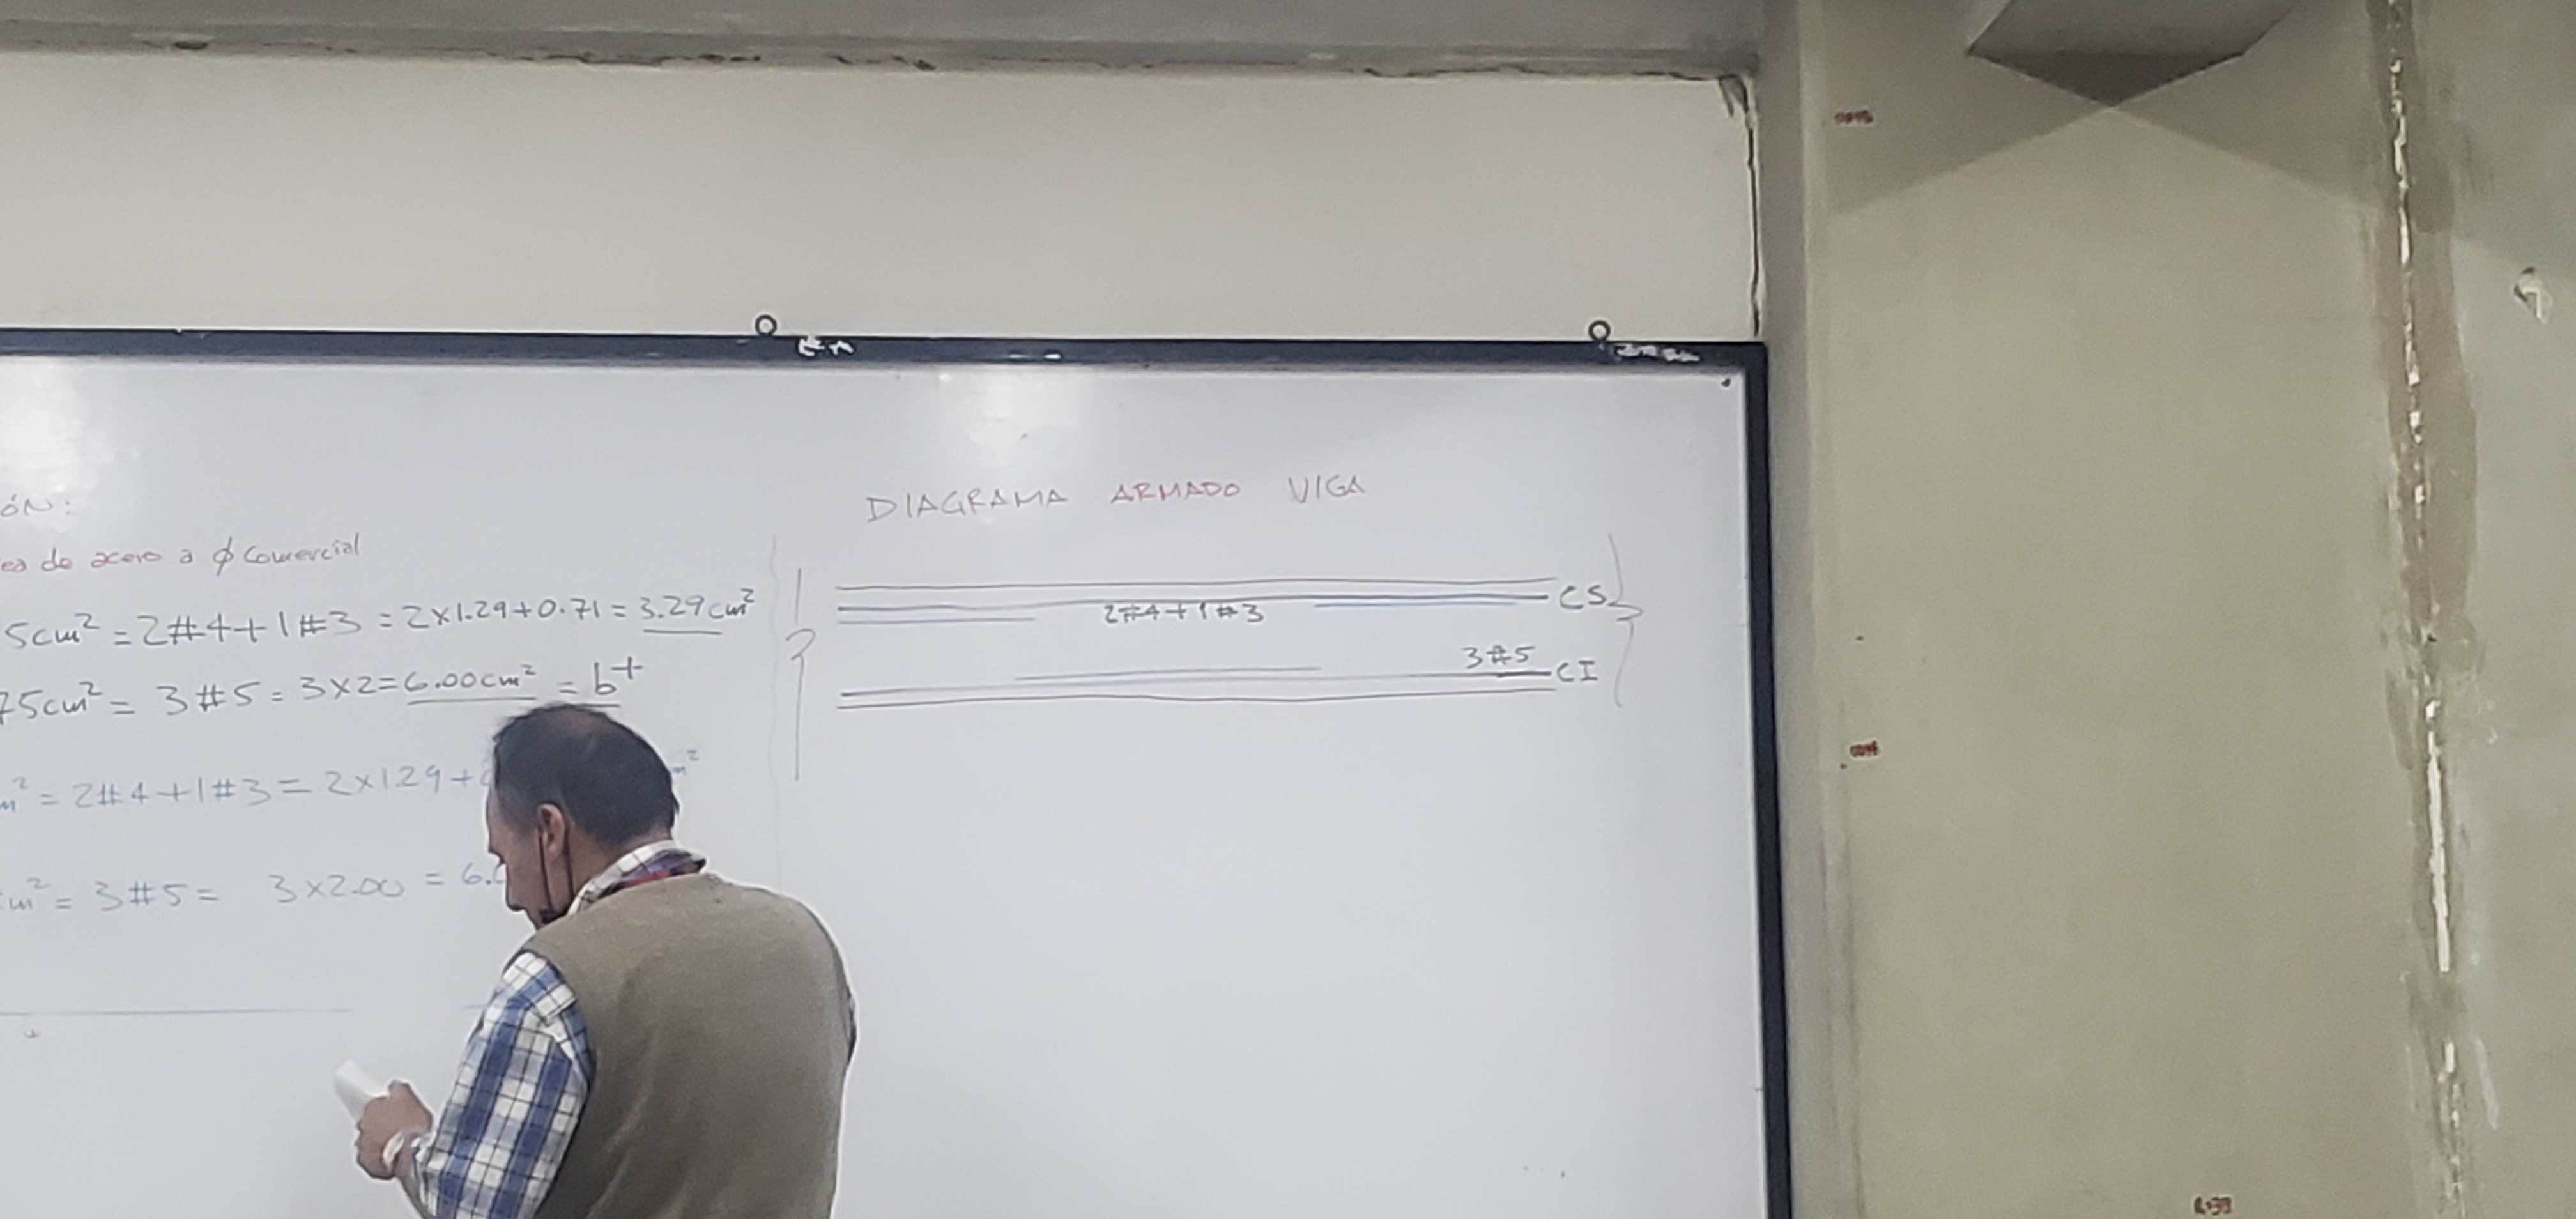 ÓN:
ea de acero a ϕ comercial
5cm² = 2#4+1#3 = 2x1.29+0.71 = 3.29cm²
75cm² = 3#5 = 3x2=6.00cm² = b+
m² = 2#4+1#3 = 2x1.29+
cm² = 3#5 = 3x2.00 = 6.0
DIAGRAMA ARMADO VIGA
CS
2#4+1#3
3#5
CI